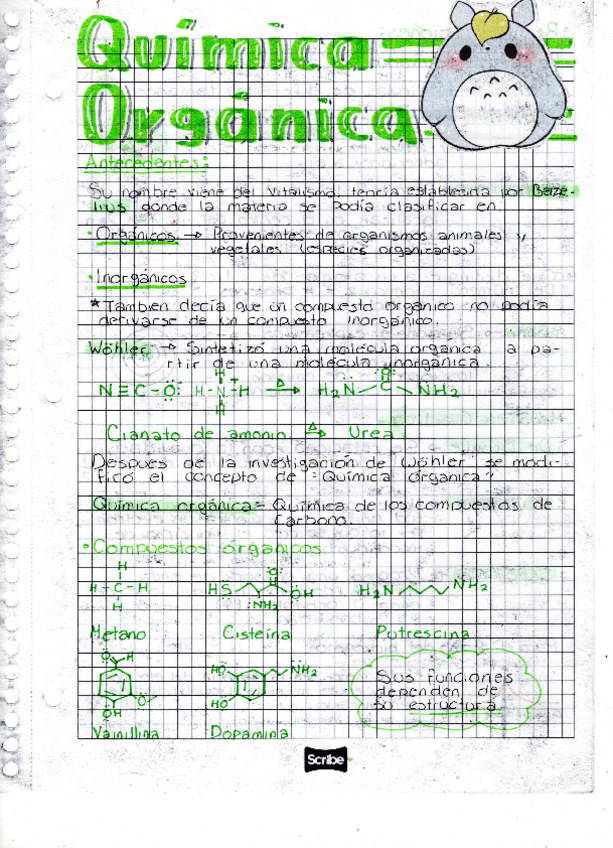 Química
Orgánica
Antecedentes:
Su nombre viene del vitalismo, teoría establecida por Berze-
lius donde la materia se podía clasificar en:
• Orgánicos → Provenientes de organismos animales y
vegetales (especies organizadas)
• Inorgánicos
* Tambien decía que un compuesto orgánico no podía
derivarse de un compuesto inorgánico.
Wöhler → Sintetizó una molécula orgánica a pa-
rtir de una molécula inorgánica.
N≡C-O: H-N-H Δ→ H2N C NH2
H
H
O
Cianato de amonio Δ→ Urea
Despues de la investigación de Wöhler se modi-
ficó el concepto de "Química órganica"
Química orgánica = Química de los compuestos de
Carbono.
• Compuestos órganicos
H
H-C-H
H
HS O OH
:NH2
H2N NH2
Metano Cisteína Putrescina
O H
O
OH
HO NH2
HO
Vainillina Dopamina
Sus funciones
dependen de
su estructura
Scribe